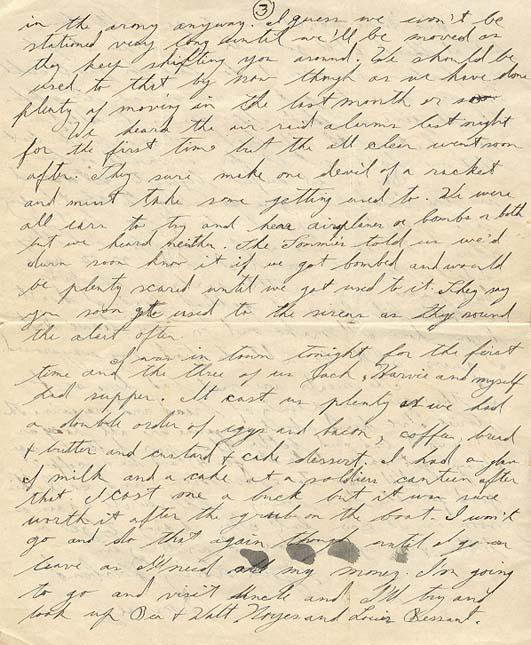 3
in the army anyway. I guess we won't be
stationed very long until we'll be moved as
they keep shifting you around. We should be
used to that by now though as we have done
plenty of moving in the last month or so
We heard the air raid alarms last night
for the first time but the all clear went soon
after. They sure make one devil of a racket
and must take some getting used to. We were
all ears to try and hear airplanes or bombs or both
but we heard neither. The Tommies told us we'd
darn soon know it if we got bombed and would
be plenty scared until we got used to it. They say
you soon get used to the sirens as they sound
the alert often
I was in town tonight for the first
time and the three of us Jack, Harvie and myself
had supper. It cost us plenty as we had
a double order of eggs and bacon, coffee, bread
& butter and custard & cake dessert. I had a glass
of milk and a cake at a soldiers canteen after
that I cost me a buck but it was sure
worth it after the grub on the boat. I won't
go and do that again though until I go on
leave as I'll need all my money. I'm going
to go and visit uncle and I'll try and
look up & Walt Noyes and Louis